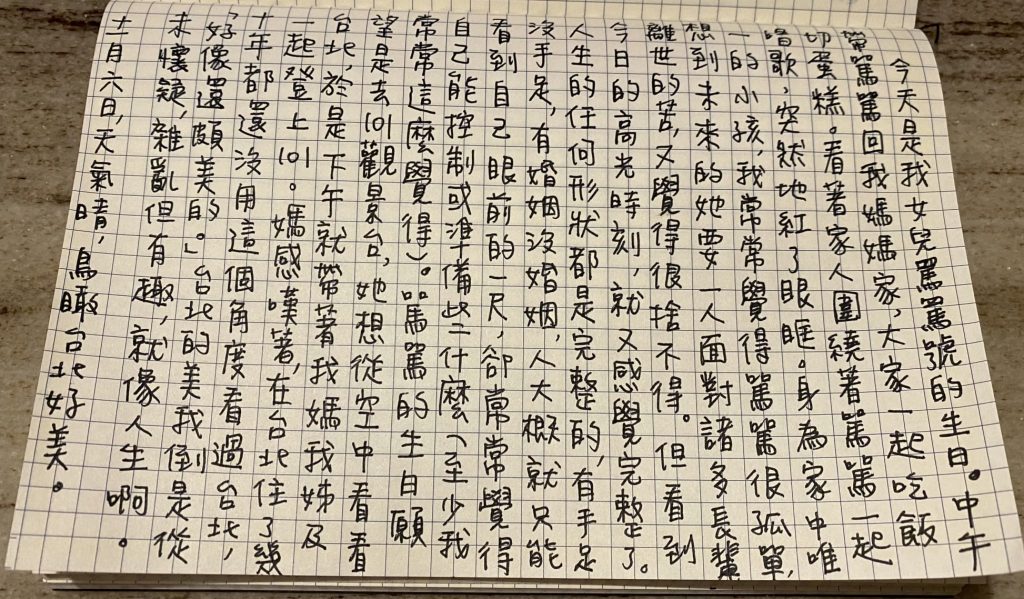 今天是我女兒罵罵號的生日。中午
帶罵罵回我媽媽家,大家一起吃飯
切蛋糕。看著家人圍繞著罵罵一起
唱歌,突然地紅了眼眶。身為家中唯
一的小孩,我常常覺得罵罵很孤單,
想到未來的她要一人面對諸多長輩
離世的苦,又覺得很捨不得。但看到
今日的高光時刻,就又感覺完整了。
人生的任何形狀都是完整的,有手足
沒手足,有婚姻沒婚姻,人大概就只能
看到自己眼前的一尺,卻常常覺得
自己能控制或準備些什麼(至少我
常常這麼覺得)。罵罵的生日願
望是去101觀景台,她想從空中看看
台北,於是下午就帶著我媽我姊及
一起登上101。媽感嘆著,在台北住了幾
十年都還沒用這個角度看過台北,
「好像還頗美的。」台北的美我倒是從
未懷疑,雜亂但有趣,就像人生啊。
十一月六日,天氣晴,鳥瞰台北好美。